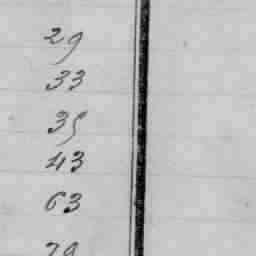 29
33
35
43
63
79